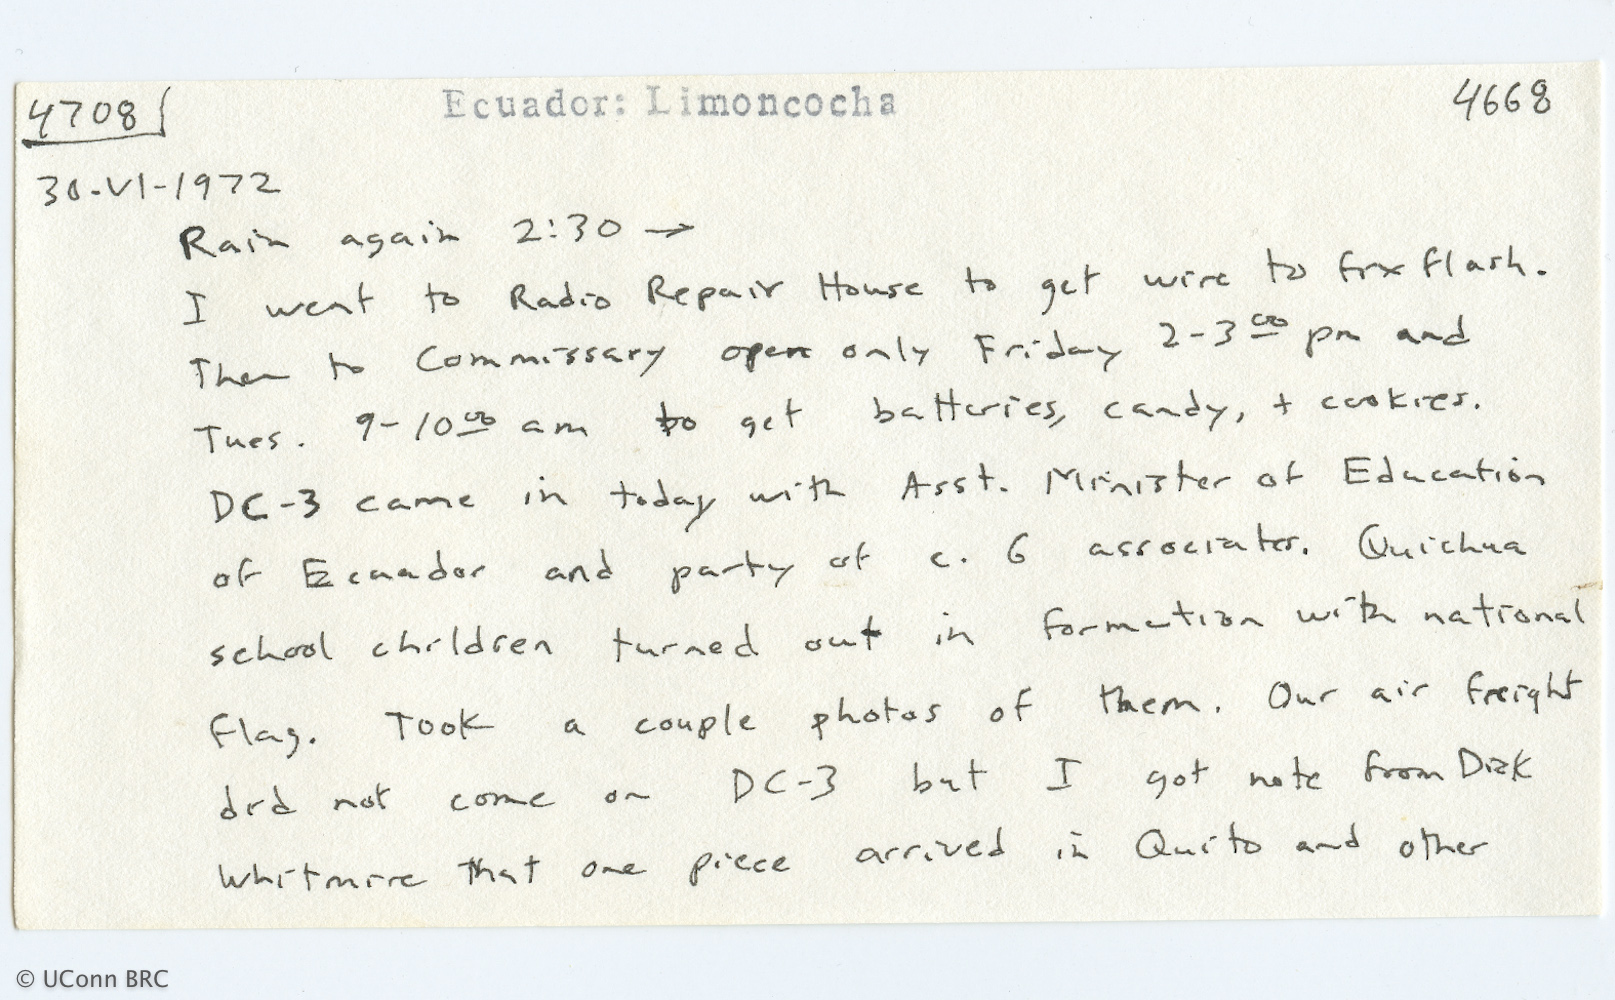 4708 Ecuador: Limoncocha 4668
30-VI-1972
Rain again 2:30 →
I went to Radio Repair House to get wire to fix flash.
Then to Commissary open only Friday 2-3 00 pm and
Tues. 9-10 00 am to get batteries, candy, + cookies.
DC-3 came in today with Asst. Minister of Education
of Ecuador and party of c. 6 associates. Quichua
school children turned out in formation with national
flag. Took a couple photos of them. Our air freight
did not come on DC-3 but I got note from Dick
Whitmire that one piece arrived in Quito and other
© UConn BRC